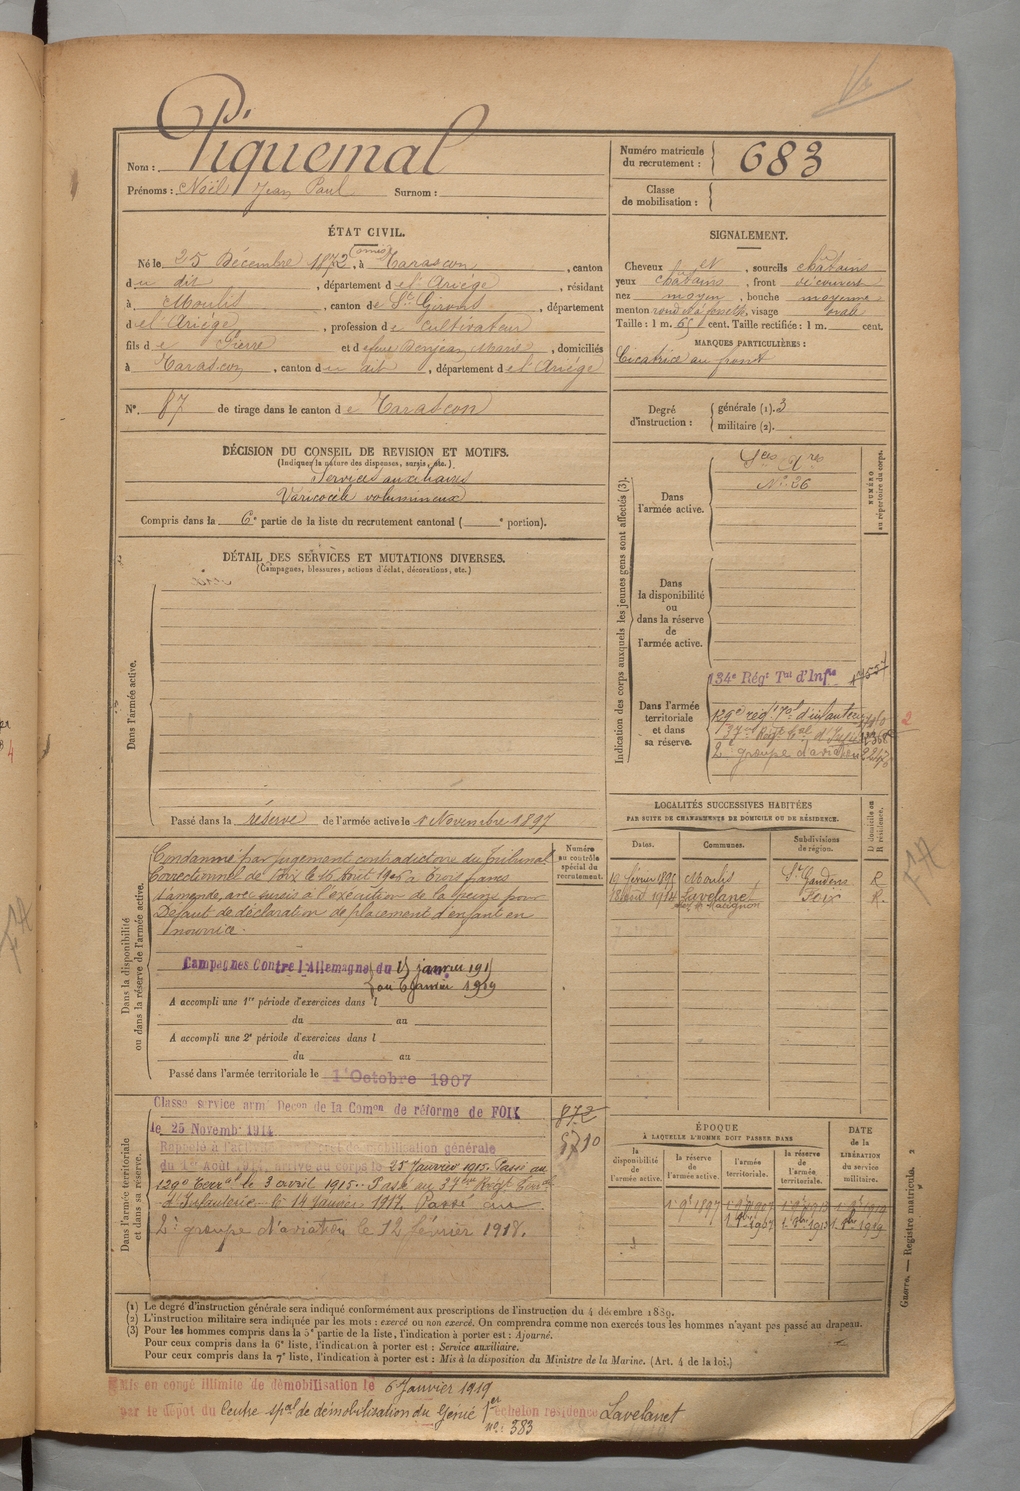 Nom : Piquemal
Prénoms : Noël Jean Paul Surnom :
Numéro matricule du recrutement : 683
Classe de mobilisation :
ÉTAT CIVIL.
Né le 25 Décembre 1872, à Tarascon, canton
du dit, département de l'Ariège, résidant
à Moulis, canton de St Girons, département
de l'Ariège, profession de Cultivateur
fils de Pierre et de feue Bonjean Marie, domiciliés
à Tarascon, canton du dit, département de l'Ariège
N° 87 de tirage dans le canton de Tarascon
SIGNALEMENT.
Cheveux et, sourcils châtains
yeux châtains, front découvert
nez moyen, bouche moyenne
menton rond, visage ovale
Taille : 1 m. 65 cent. Taille rectifiée : 1 m. cent.
MARQUES PARTICULIÈRES :
Cicatrice au front
Degré d'instruction : générale (1). 3
militaire (2).
DÉCISION DU CONSEIL DE REVISION ET MOTIFS.
(Indiquer la nature des dispenses, sursis, etc.)
Services auxiliaires
Varicocèle volumineux
Compris dans la 6e partie de la liste du recrutement cantonal ( e portion).
DÉTAIL DES SERVICES ET MUTATIONS DIVERSES.
(Campagnes, blessures, actions d'éclat, décorations, etc.)
Dans l'armée active.
Passé dans la réserve de l'armée active le 1 Novembre 1897
Indication des corps auxquels les jeunes gens sont affectés (3).
NUMÉRO au répertoire du corps.
Dans l'armée active.
N° 26
Dans la disponibilité ou dans la réserve de l'armée active.
Dans l'armée territoriale et dans sa réserve.
134e Régt Tal d'Infie
129e régt Tal d'infanterie
37e Régt Tal d'Infie
2e groupe d'aviation
LOCALITÉS SUCCESSIVES HABITÉES
PAR SUITE DE CHANGEMENTS DE DOMICILE OU DE RÉSIDENCE.
Dates. Communes. Subdivisions de région. D domicile ou R résidence.
Moulis St Gaudens R
1914 Lavelanet Foix R.
Dans la disponibilité ou dans la réserve de l'armée active.
Numéro au contrôle spécial du recrutement.
Condamné par jugement contradictoire du Tribunal
Correctionnel de Foix le 16 Août 1906 à trois francs
d'amende, avec sursis à l'exécution de la peine pour
Défaut de déclaration de placement d'enfant en
nourrice.
Campagnes Contre l'Allemagne du 25 janvier 1915
au 6 janvier 1919
A accompli une 1re période d'exercices dans l
du au
A accompli une 2e période d'exercices dans l
du au
Passé dans l'armée territoriale le 1er Octobre 1907
Dans l'armée territoriale et dans sa réserve.
Classé service armé Decon de la Comon de réforme de FOIX
le 25 Novembre 1914
872
8710
Rappelé à l'activité mobilisation générale
du 1er Août 1914, arrivé au corps le 25 Janvier 1915. Passé au
129e Terral le 3 avril 1915. Passé au 37e Régt Terral
d'Infanterie le 14 Janvier 1917. Passé au
2e groupe d'aviation le 12 février 1918.
ÉPOQUE
À LAQUELLE L'HOMME DOIT PASSER DANS
la disponibilité de l'armée active. la réserve de l'armée active. l'armée territoriale. la réserve de l'armée territoriale.
DATE de la LIBÉRATION du service militaire.
(1) Le degré d'instruction générale sera indiqué conformément aux prescriptions de l'instruction du 4 décembre 1889.
(2) L'instruction militaire sera indiquée par les mots : exercé ou non exercé. On comprendra comme non exercés tous les hommes n'ayant pas passé au drapeau.
(3) Pour les hommes compris dans la 5e partie de la liste, l'indication à porter est : Ajourné.
Pour ceux compris dans la 6e liste, l'indication à porter est : Service auxiliaire.
Pour ceux compris dans la 7e liste, l'indication à porter est : Mis à la disposition du Ministre de la Marine. (Art. 4 de la loi.)
Guerre. — Registre matricule. 2
Mis en congé illimité de démobilisation le 6 Janvier 1919
par le dépôt du Centre spal de démobilisation du Génie 1er échelon résidence Lavelanet
no : 383